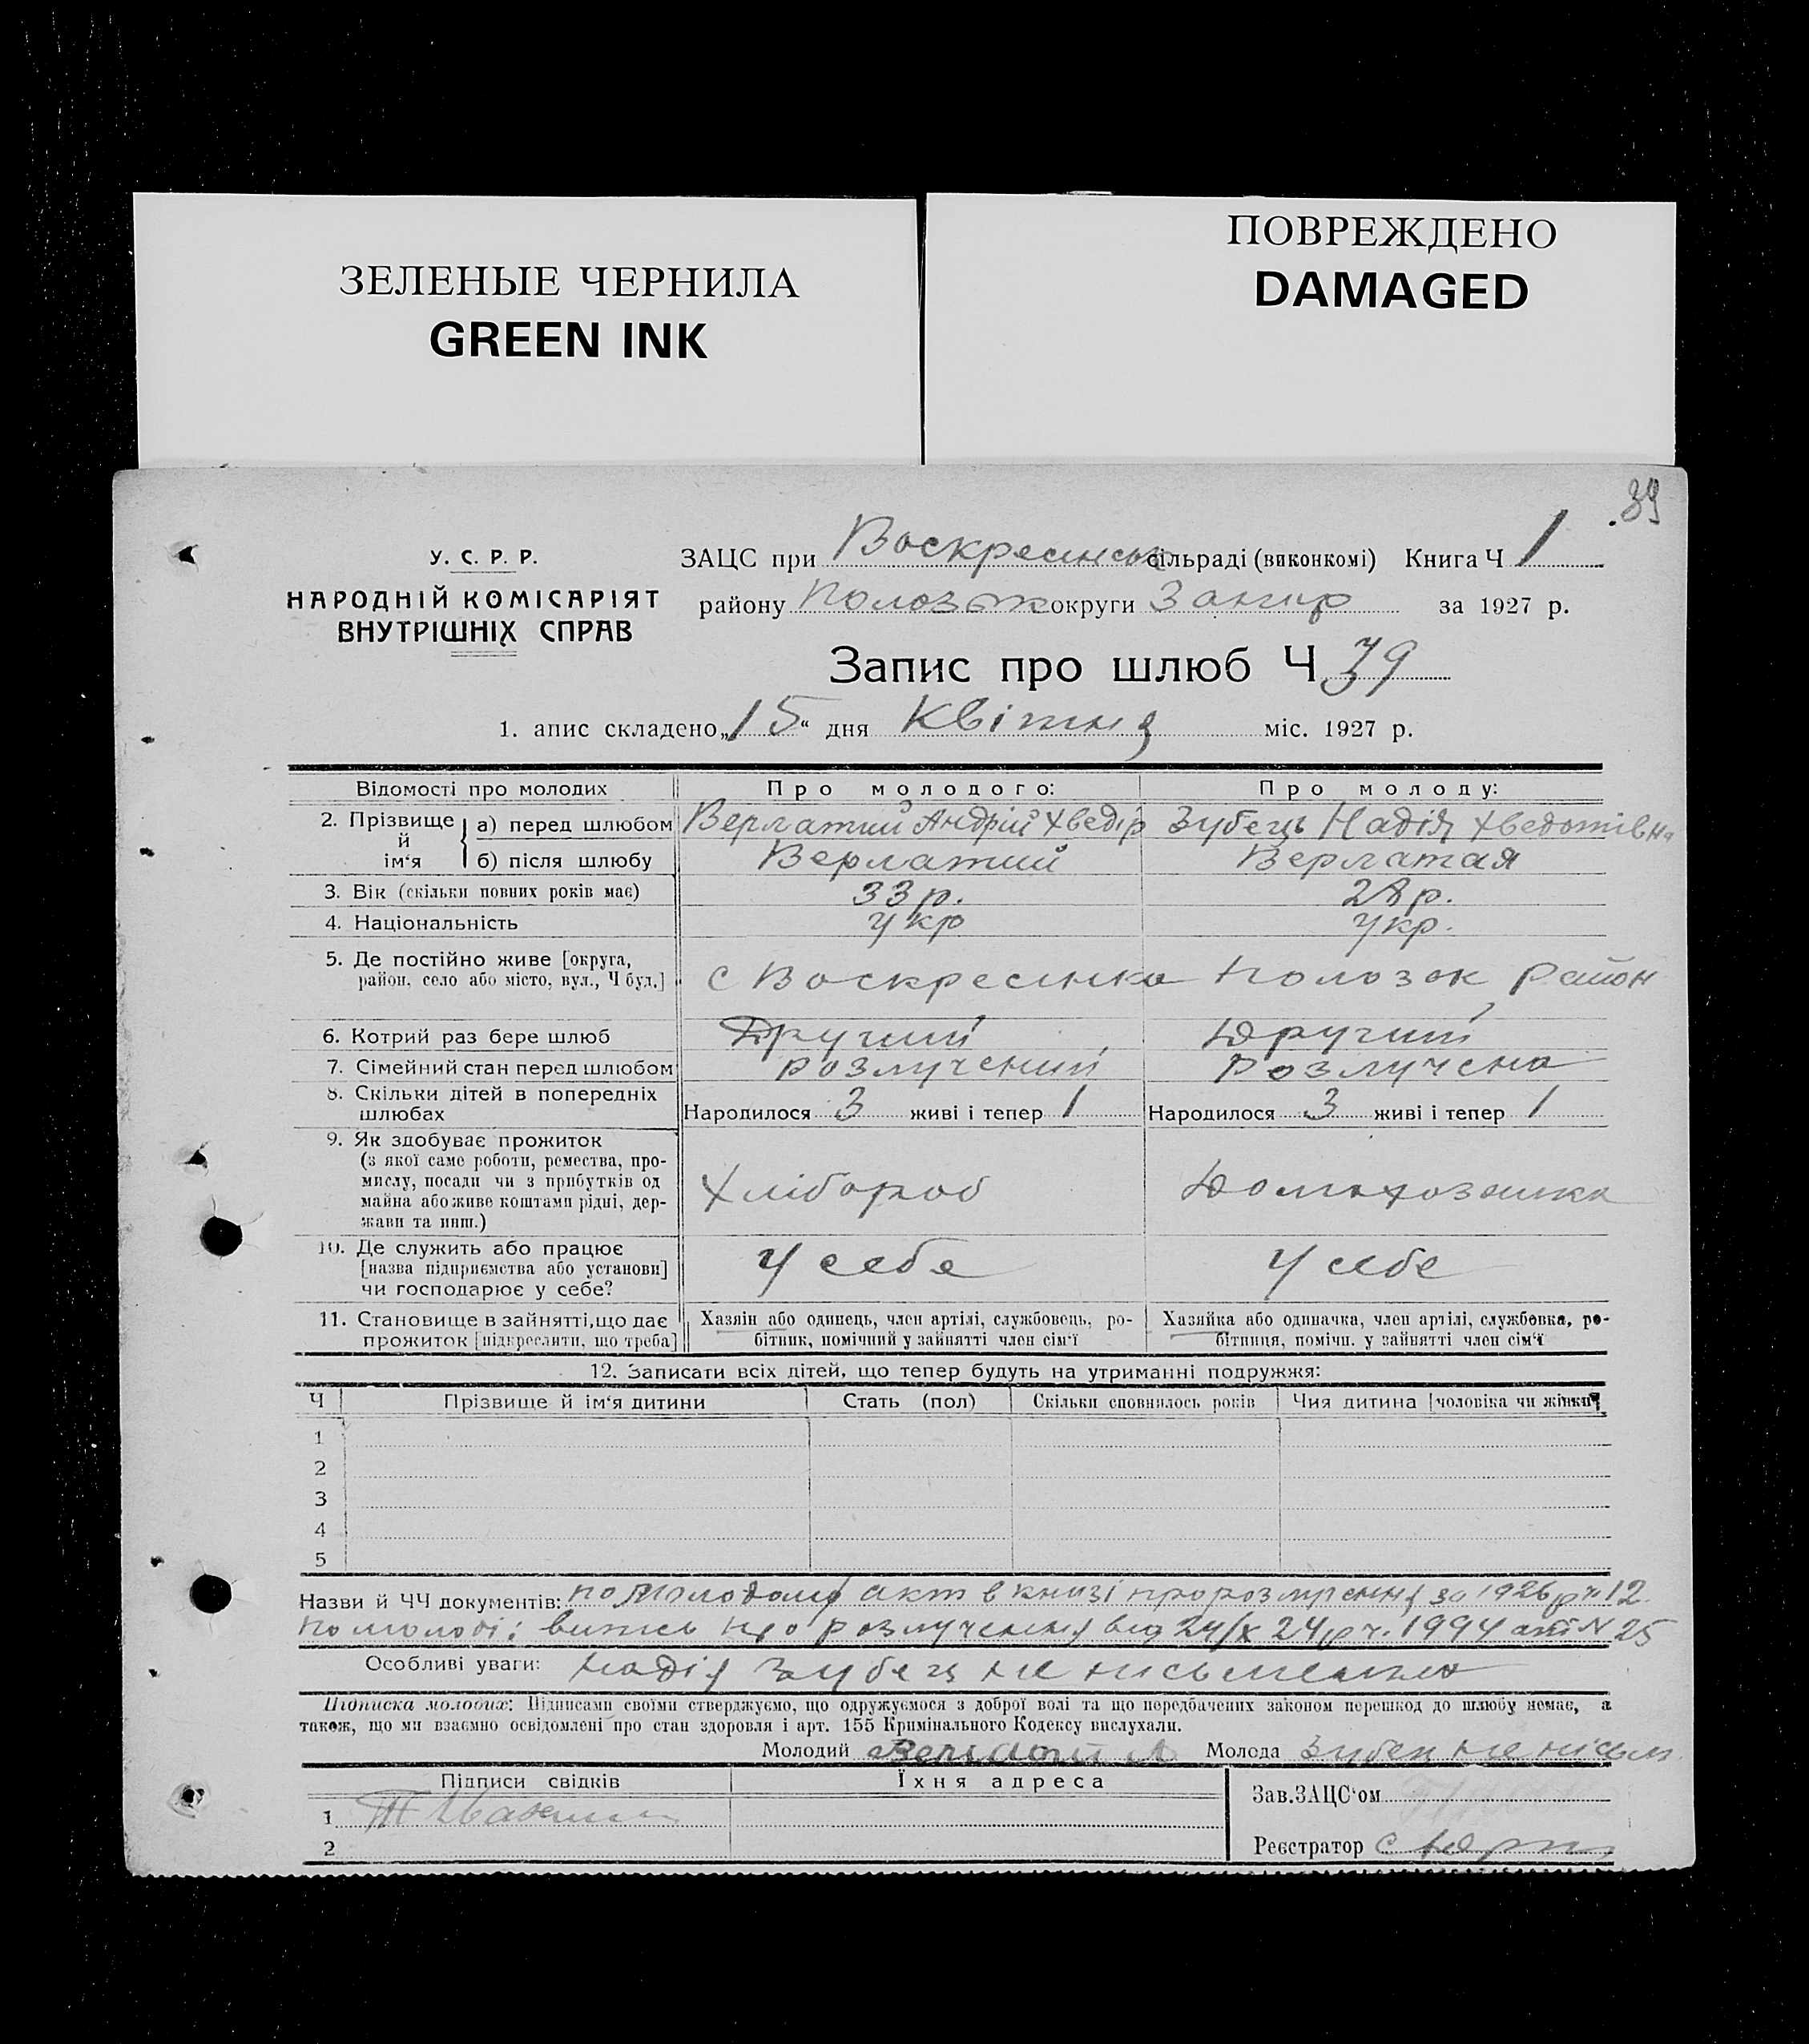 ЗЕЛЕНЫЕ ЧЕРНИЛА
GREEN INK
ПОВРЕЖДЕНО
DAMAGED
39
У. С. Р. Р.
НАРОДНІЙ КОМІСАРІЯТ
ВНУТРІШНІХ СПРАВ
ЗАЦС при Воскресинськ сільраді (виконкомі) Книга Ч 1
району Полозьк округи Запор за 1927 р.
Запис про шлюб Ч 39
1. апис складено „15“ дня Квітня міс. 1927 р.
Відомості про молодих Про молодого: Про молоду:
2. Прізвище й ім‘я а) перед шлюбом Верлатий Андрій Хведір Зубець Надія Хведотівна
б) після шлюбу Верлатий Верлатая
3. Вік (скільки повних років має) 33 р. 28 р.
4. Національність Укр Укр.
5. Де постійно живе [округа, район, село або місто, вул., Ч буд.] с Воскресинка Полозок Район
6. Котрий раз бере шлюб Другий Другий
7. Сімейний стан перед шлюбом розлучений Розлучена
8. Скільки дітей в попередніх шлюбах Народилося 3 живі і тепер 1 Народилося 3 живі і тепер 1
9. Як здобуває прожиток
(з якої саме роботи, ремества, про-
мислу, посади чи з прибутків од
майна або живе коштами рідні, дер-
жави та инш.) Хлібороб Домохозяшка
10. Де служить або працює
[назва підприємства або установи]
чи господарює у себе? У себе У себе
11. Становище в зайнятті, що дає
прожиток [підкреслити, що треба]
Хазяін або одинець, член артілі, службовець, ро-
бітник, помічний у зайнятті член сім‘ї
Хазяйка або одиначка, член артілі, службовка, ро-
бітниця, помічн. у зайнятті член сім‘ї
12. Записати всіх дітей, що тепер будуть на утриманні подружжя:
Ч Прізвище й ім‘я дитини Стать (пол) Скільки сповнилось років Чия дитина [чоловіка чи жінки]
1
2
3
4
5
Назви й ЧЧ документів: по молодому акт в книзі про розлучення за 1926 р ч 12
по молоді: випись про розлучення від 24/X 24 р ч. 1994 акт N 25
Особливі уваги: Надія Зубец не письменна
Підписка молодих: Підписами своїми стверджуємо, що одружуємося з доброї волі та що передбачених законом перешкод до шлюбу немає, а
також, що ми взаємно освідомлені про стан здоровля і арт. 155 Кримінального Кодексу вислухали.
Молодий Верлатий А Молода Зубец не письм
Підписи свідків Їхня адреса
1
2
Зав.ЗАЦС‘ом
Реєстратор